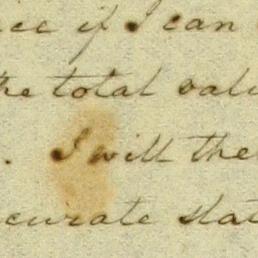 if I can
the total
. I will the
curate stat